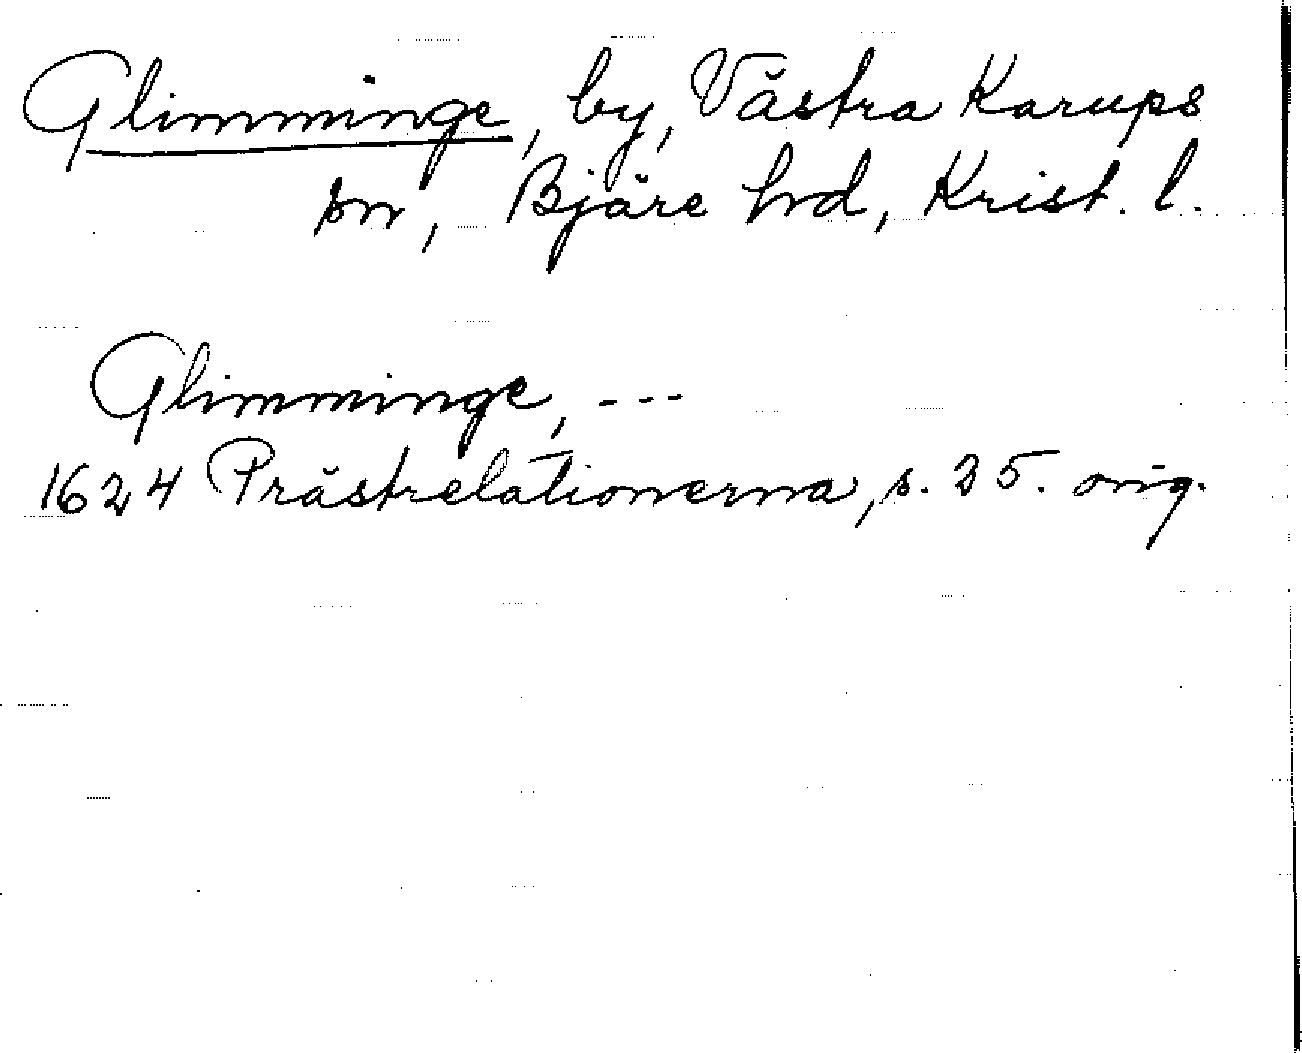 Glimminge, by, Västra Karups
sn, Bjäre hrd, Krist. l.
Glimminge, ---
1624 Prästrelationerna, s. 35. orig.